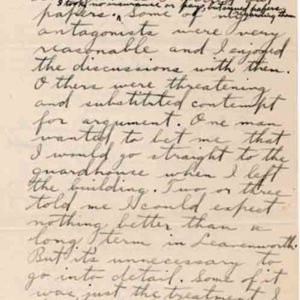 I took no insurance or pay,
papers. Some of
antagonists were very
reasonable and I enjoyed
the discussions with them.
Others were threatening
and substituted contempt
for argument. One man
wanted to bet me that
I would go straight to the
guardhouse when I left
the building. Two or three
told me I could expect
nothing better than a
long term in Leavenworth.
But it's unnecessary to
go into detail. Some of it
was just the treatment I